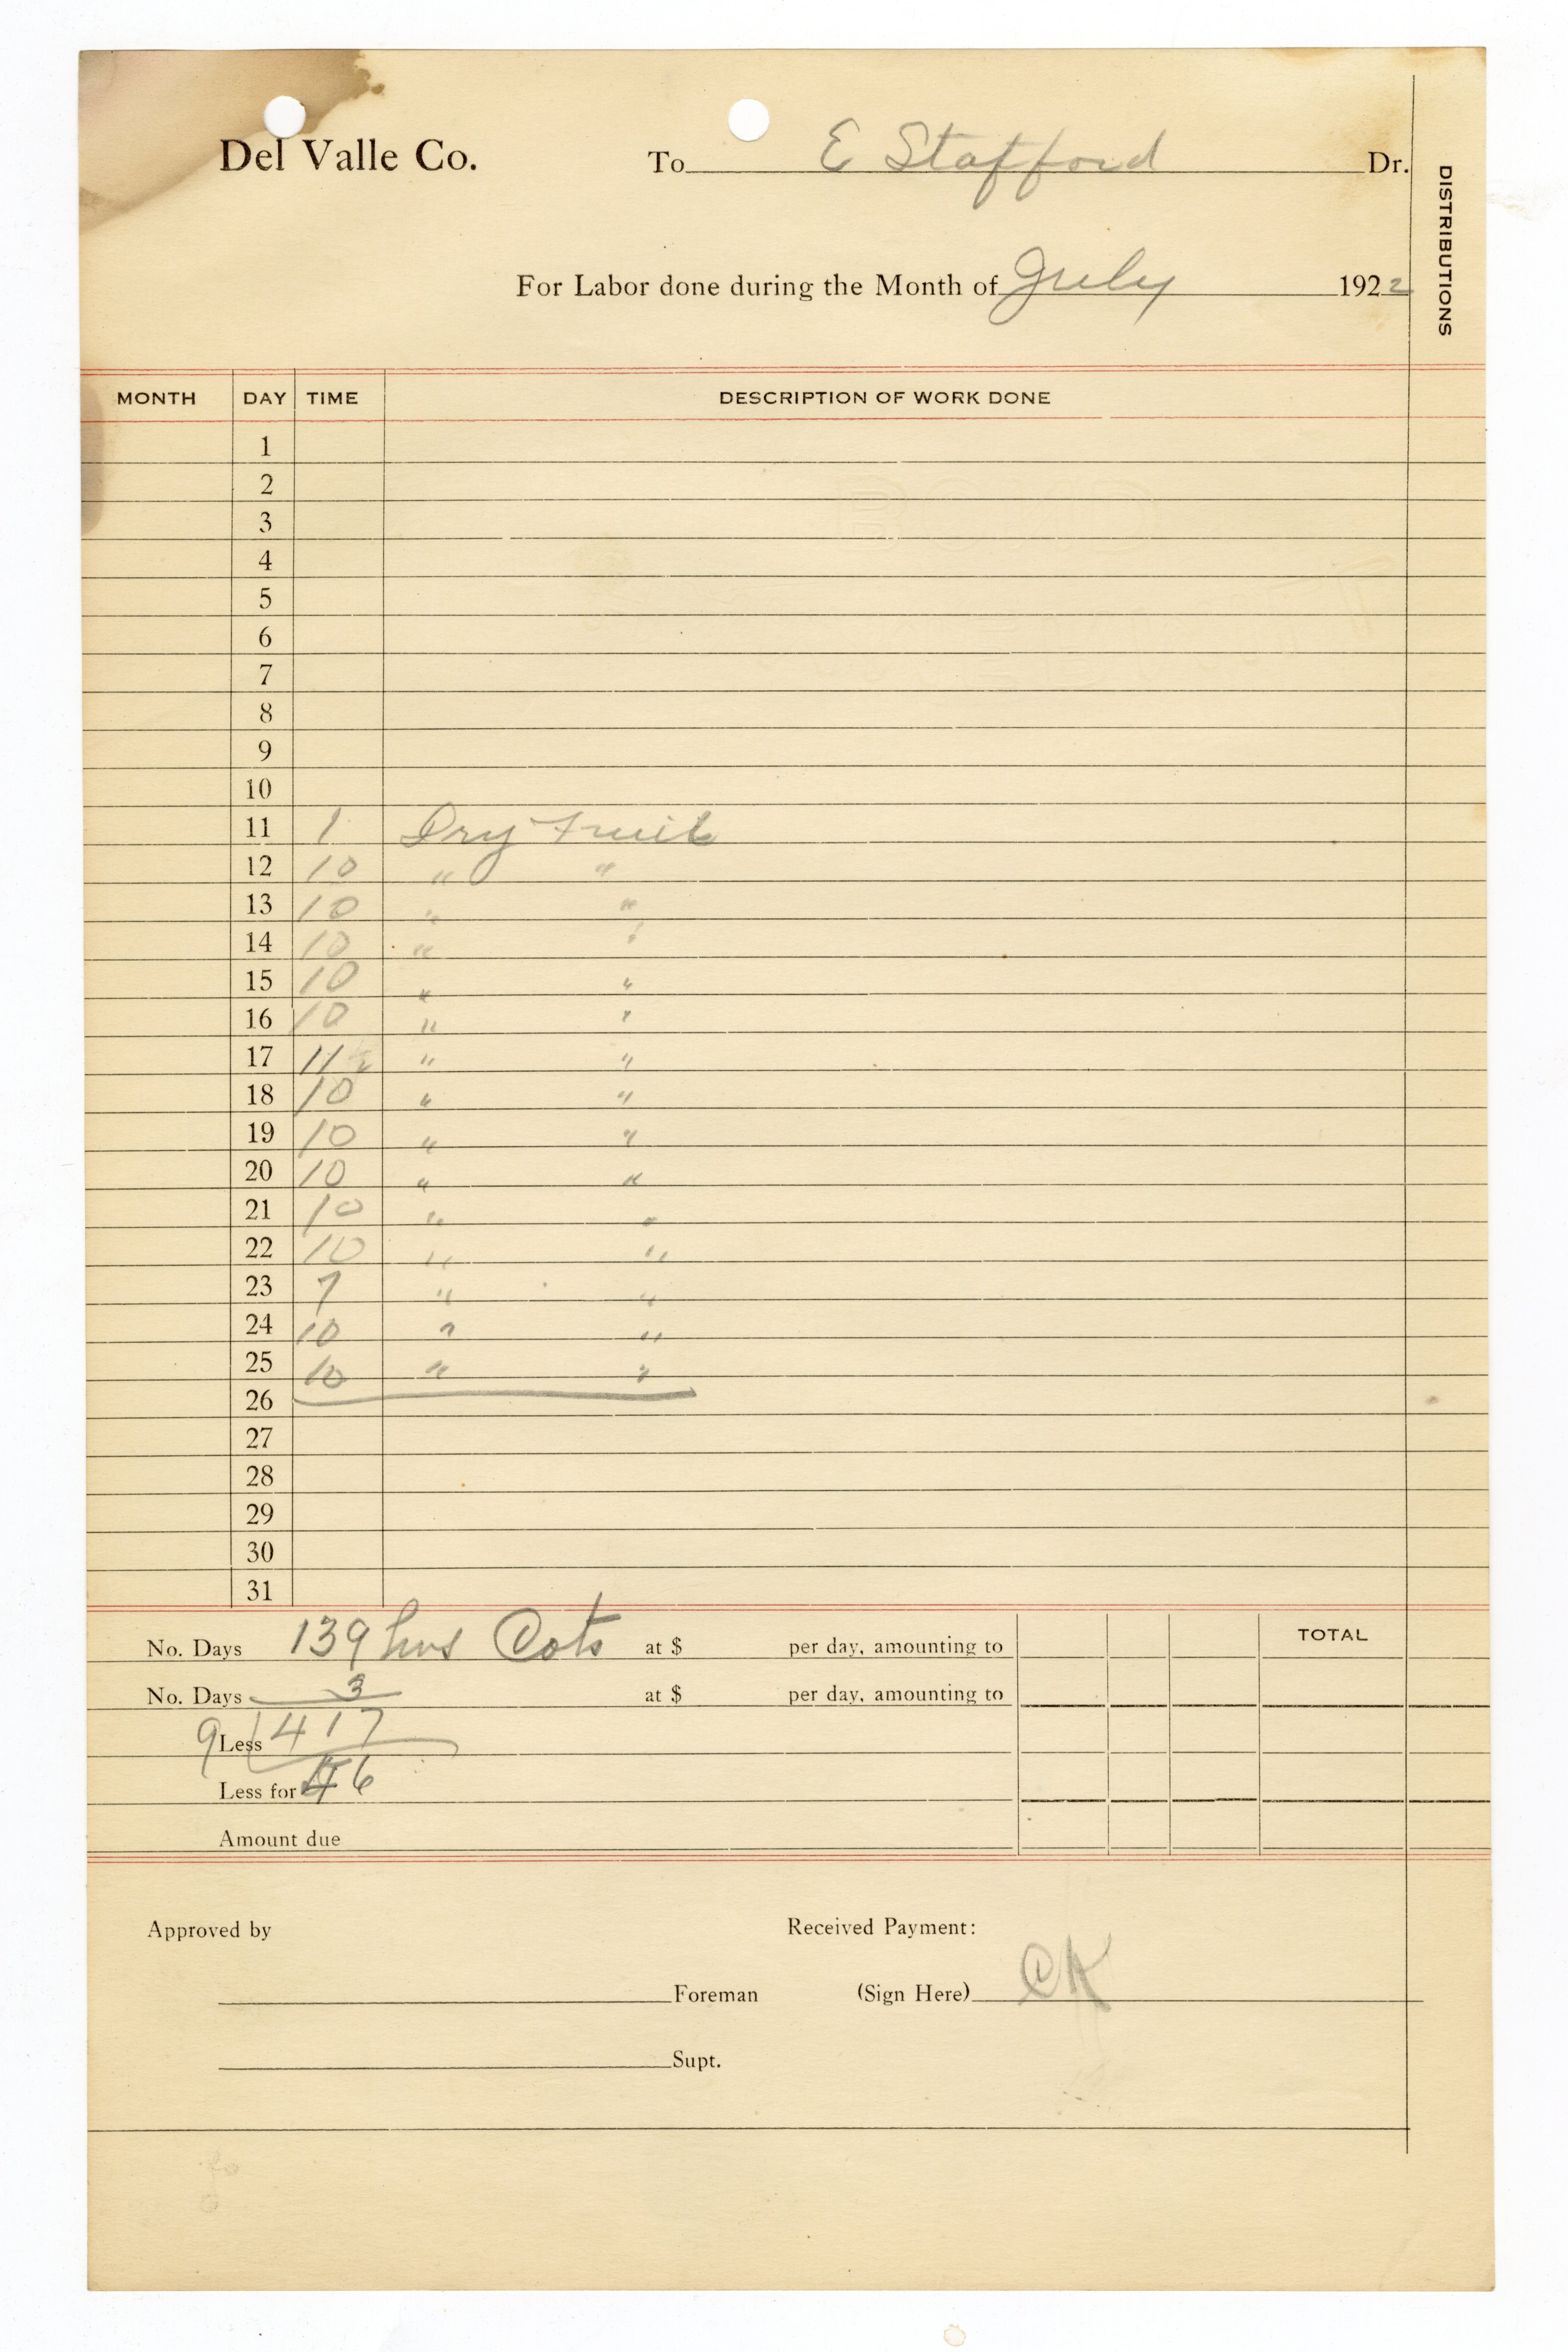 Del Valle Co. To E Stafford Dr.
DISTRIBUTIONS
For Labor done during the Month of July 1922
MONTH DAY TIME DESCRIPTION OF WORK DONE
1
2
3
4
5
6
7
8
9
10
11 1 Dry Fruit
12 10 " "
13 10 " "
14 10 " "
15 10 " "
16 10 " "
17 11 1/2 " "
18 10 " "
19 10 " "
20 10 " "
21 10 " "
22 10 " "
23 7 " "
24 10 " "
25 10 " "
26
27
28
29
30
31
No. Days 139 hrs Cots at $ per day, amounting to TOTAL
No. Days 3 at $ per day, amounting to
9 Less 417
Less for 46
Amount due
Approved by Received Payment:
Foreman (Sign Here) CK
Supt.
BOND